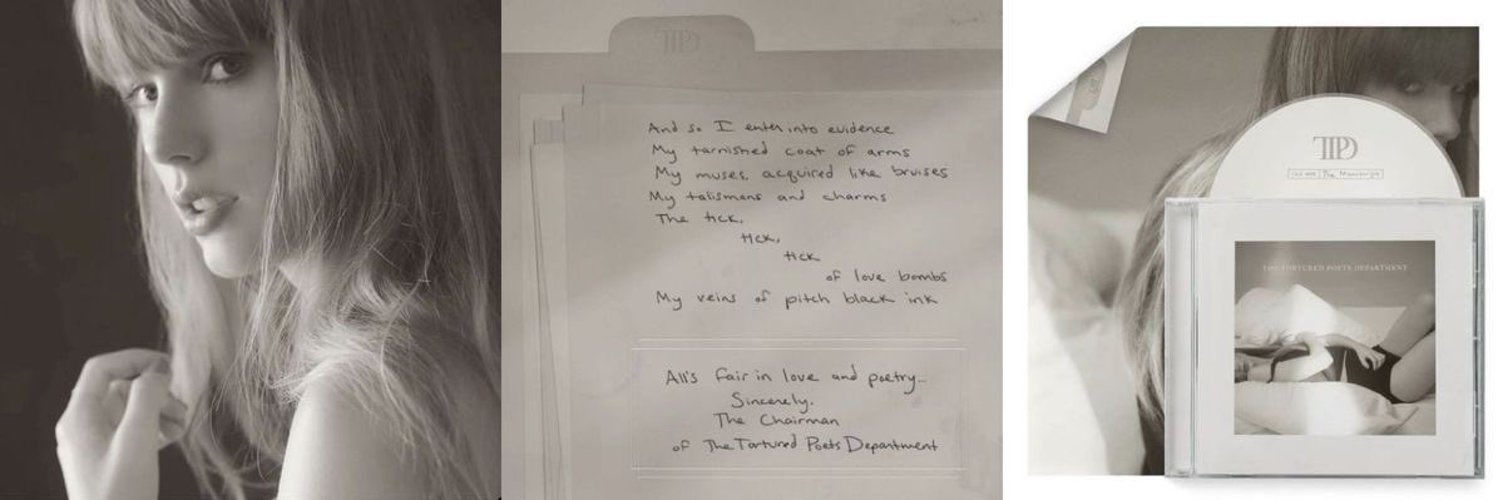 TTPD
And so I enter into evidence
My tarnished coat of arms
My muses, acquired like bruises
My talismans and charms
The tick,
tick,
tick
of love bombs
My veins of pitch black ink
All's fair in love and poetry...
Sincerely,
The Chairman
of The Tortured Poets Department
TTPD
The Manuscript
THE TORTURED POETS DEPARTMENT